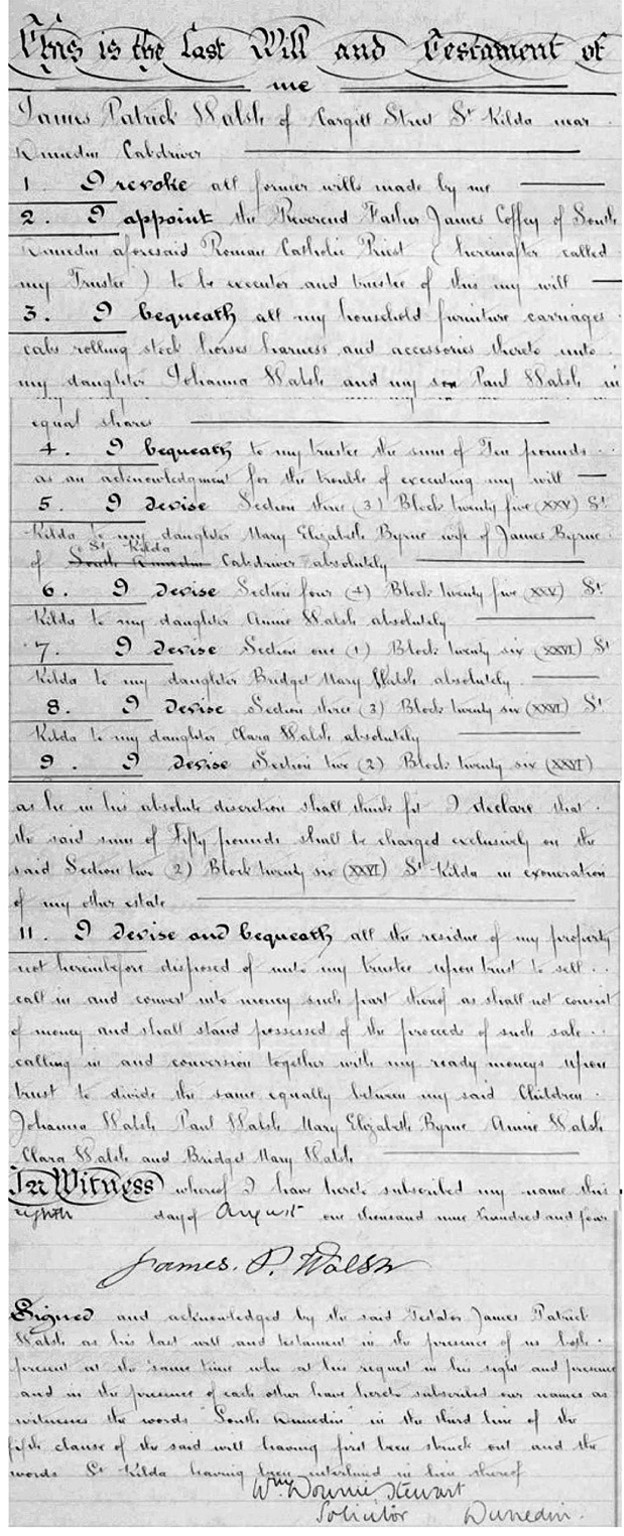 This is the Last Will and Testament of
me
James Patrick Walsh of Cargill Street St Kilda near
Dunedin Cabdriver
1. I revoke all former wills made by me
2. I appoint the Reverend Father James Coffey of South
Dunedin aforesaid Roman Catholic Priest (hereinafter called
my Trustee) to be executor and trustee of this my will
3. I bequeath all my household furniture carriages
cabs rolling stock horses harness and accessories thereto unto
my daughter Johanna Walsh and my son Paul Walsh in
equal shares
4. I bequeath to my trustee the sum of Ten pounds
as an acknowledgment for the trouble of executing my will
5. I devise Section three (3) Block twenty five (XXV) St
Kilda to my daughter Mary Elizabeth Byrne wife of James Byrne
St Kilda
of South Dunedin Cabdriver absolutely
6. I devise Section four (4) Block twenty five (XXV) St
Kilda to my daughter Annie Walsh absolutely
7. I devise Section one (1) Block twenty six (XXVI) St
Kilda to my daughter Bridget Mary Walsh absolutely
8. I devise Section three (3) Block twenty six (XXVI) St
Kilda to my daughter Clara Walsh absolutely
9. I devise Section two (2) Block twenty six (XXVI)
as he in his absolute discretion shall think fit I declare that
the said sum of Fifty pounds shall be charged exclusively on the
said Section two (2) Block twenty six (XXVI) St Kilda in exoneration
of my other estate
11. I devise and bequeath all the residue of my property
not hereinbefore disposed of unto my trustee upon trust to sell
call in and convert into money such part thereof as shall not consist
of money and shall stand possessed of the proceeds of such sale
calling in and conversion together with my ready moneys upon
trust to divide the same equally between my said Children
Johanna Walsh Paul Walsh Mary Elizabeth Byrne Annie Walsh
Clara Walsh and Bridget Mary Walsh
In Witness whereof I have hereto subscribed my name this
eighth day of August one thousand nine hundred and four
James. P. Walsh
Signed and acknowledged by the said Testator James Patrick
Walsh as his last will and testament in the presence of us both
present at the same time who at his request in his sight and presence
and in the presence of each other have hereto subscribed our names as
witnesses the words "South Dunedin" in the third line of the
fifth clause of the said will having first been struck out and the
words St Kilda having been interlined in lieu thereof
Wm Downie Stewart
Solicitor Dunedin.